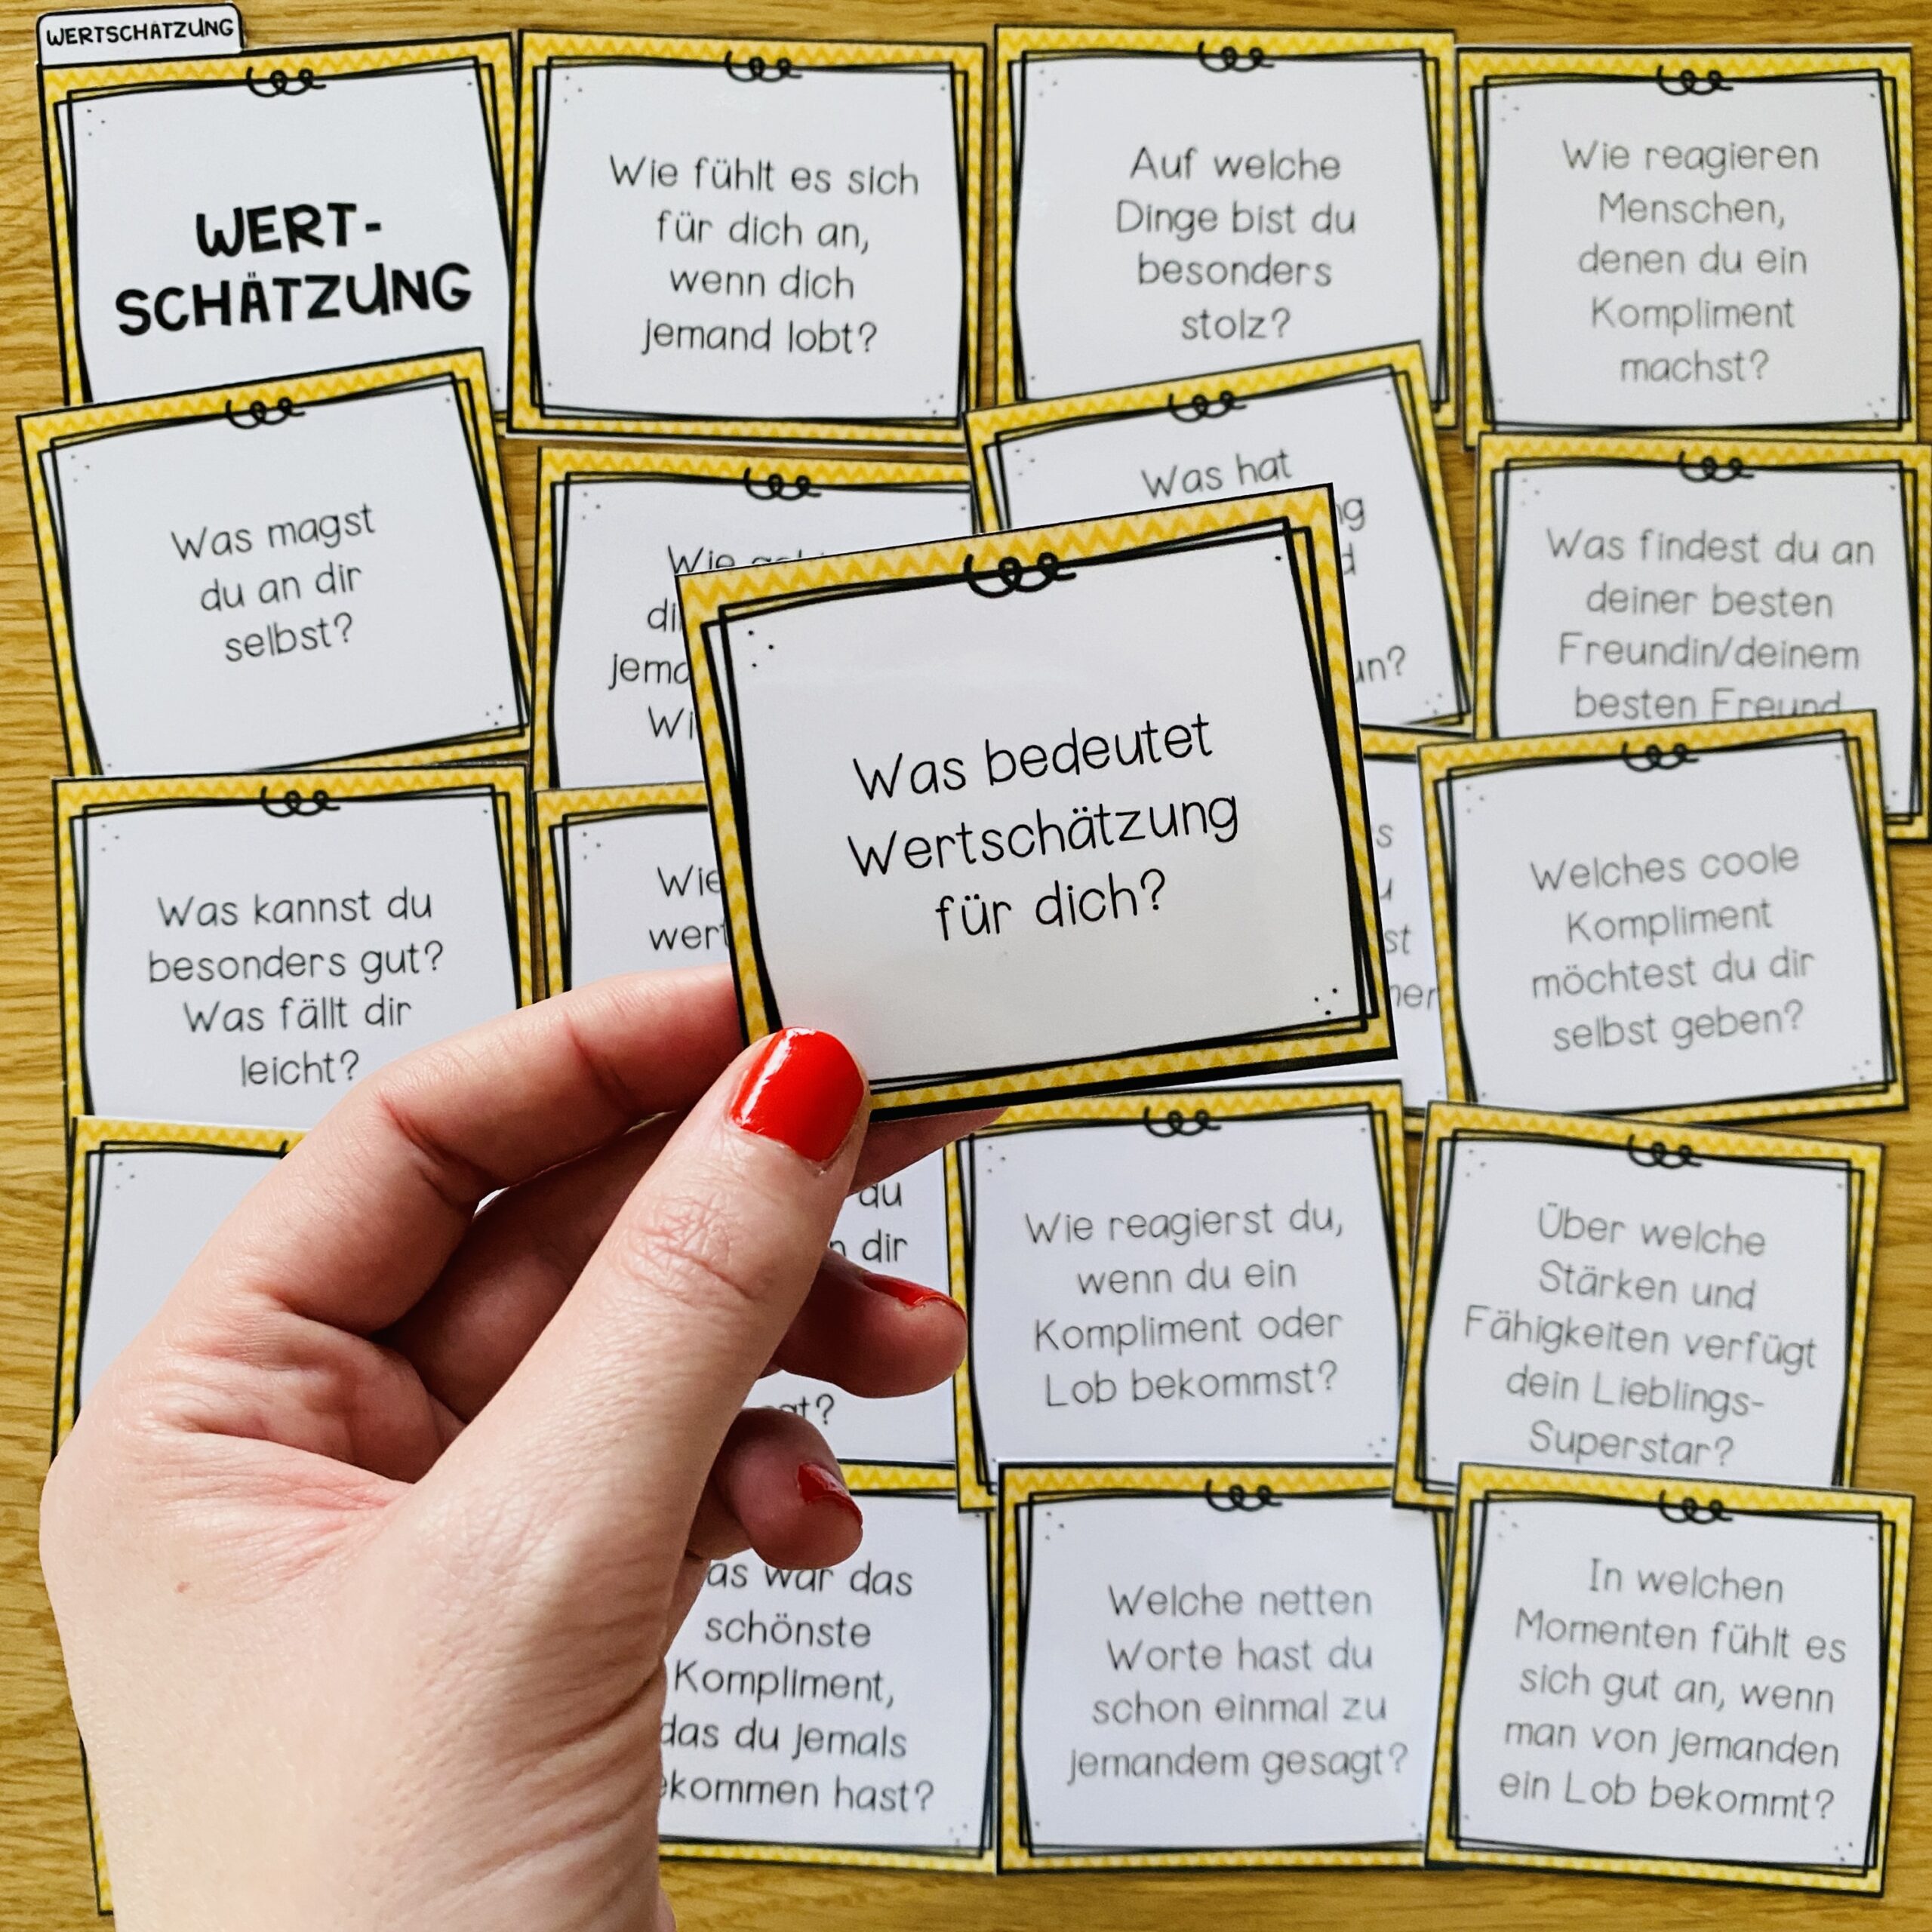 WERTSCHÄTZUNG
WERT-
SCHÄTZUNG
Wie fühlt es sich
für dich an,
wenn dich
jemand lobt?
Auf welche
Dinge bist du
besonders
stolz?
Wie reagieren
Menschen,
denen du ein
Kompliment
machst?
Was magst
du an dir
selbst?
Wie
Was hat
Was findest du an
deiner besten
Freundin/deinem
besten Freund
Was bedeutet
Wertschätzung
für dich?
Was kannst du
besonders gut?
Was fällt dir
leicht?
Wie
Welches coole
Kompliment
möchtest du dir
selbst geben?
du
dir
Wie reagierst du,
wenn du ein
Kompliment oder
Lob bekommst?
Über welche
Stärken und
Fähigkeiten verfügt
dein Lieblings-
Superstar?
war das
schönste
Kompliment,
das du jemals
hast?
Welche netten
Worte hast du
schon einmal zu
jemandem gesagt?
In welchen
Momenten fühlt es
sich gut an, wenn
man von jemanden
ein Lob bekommt?